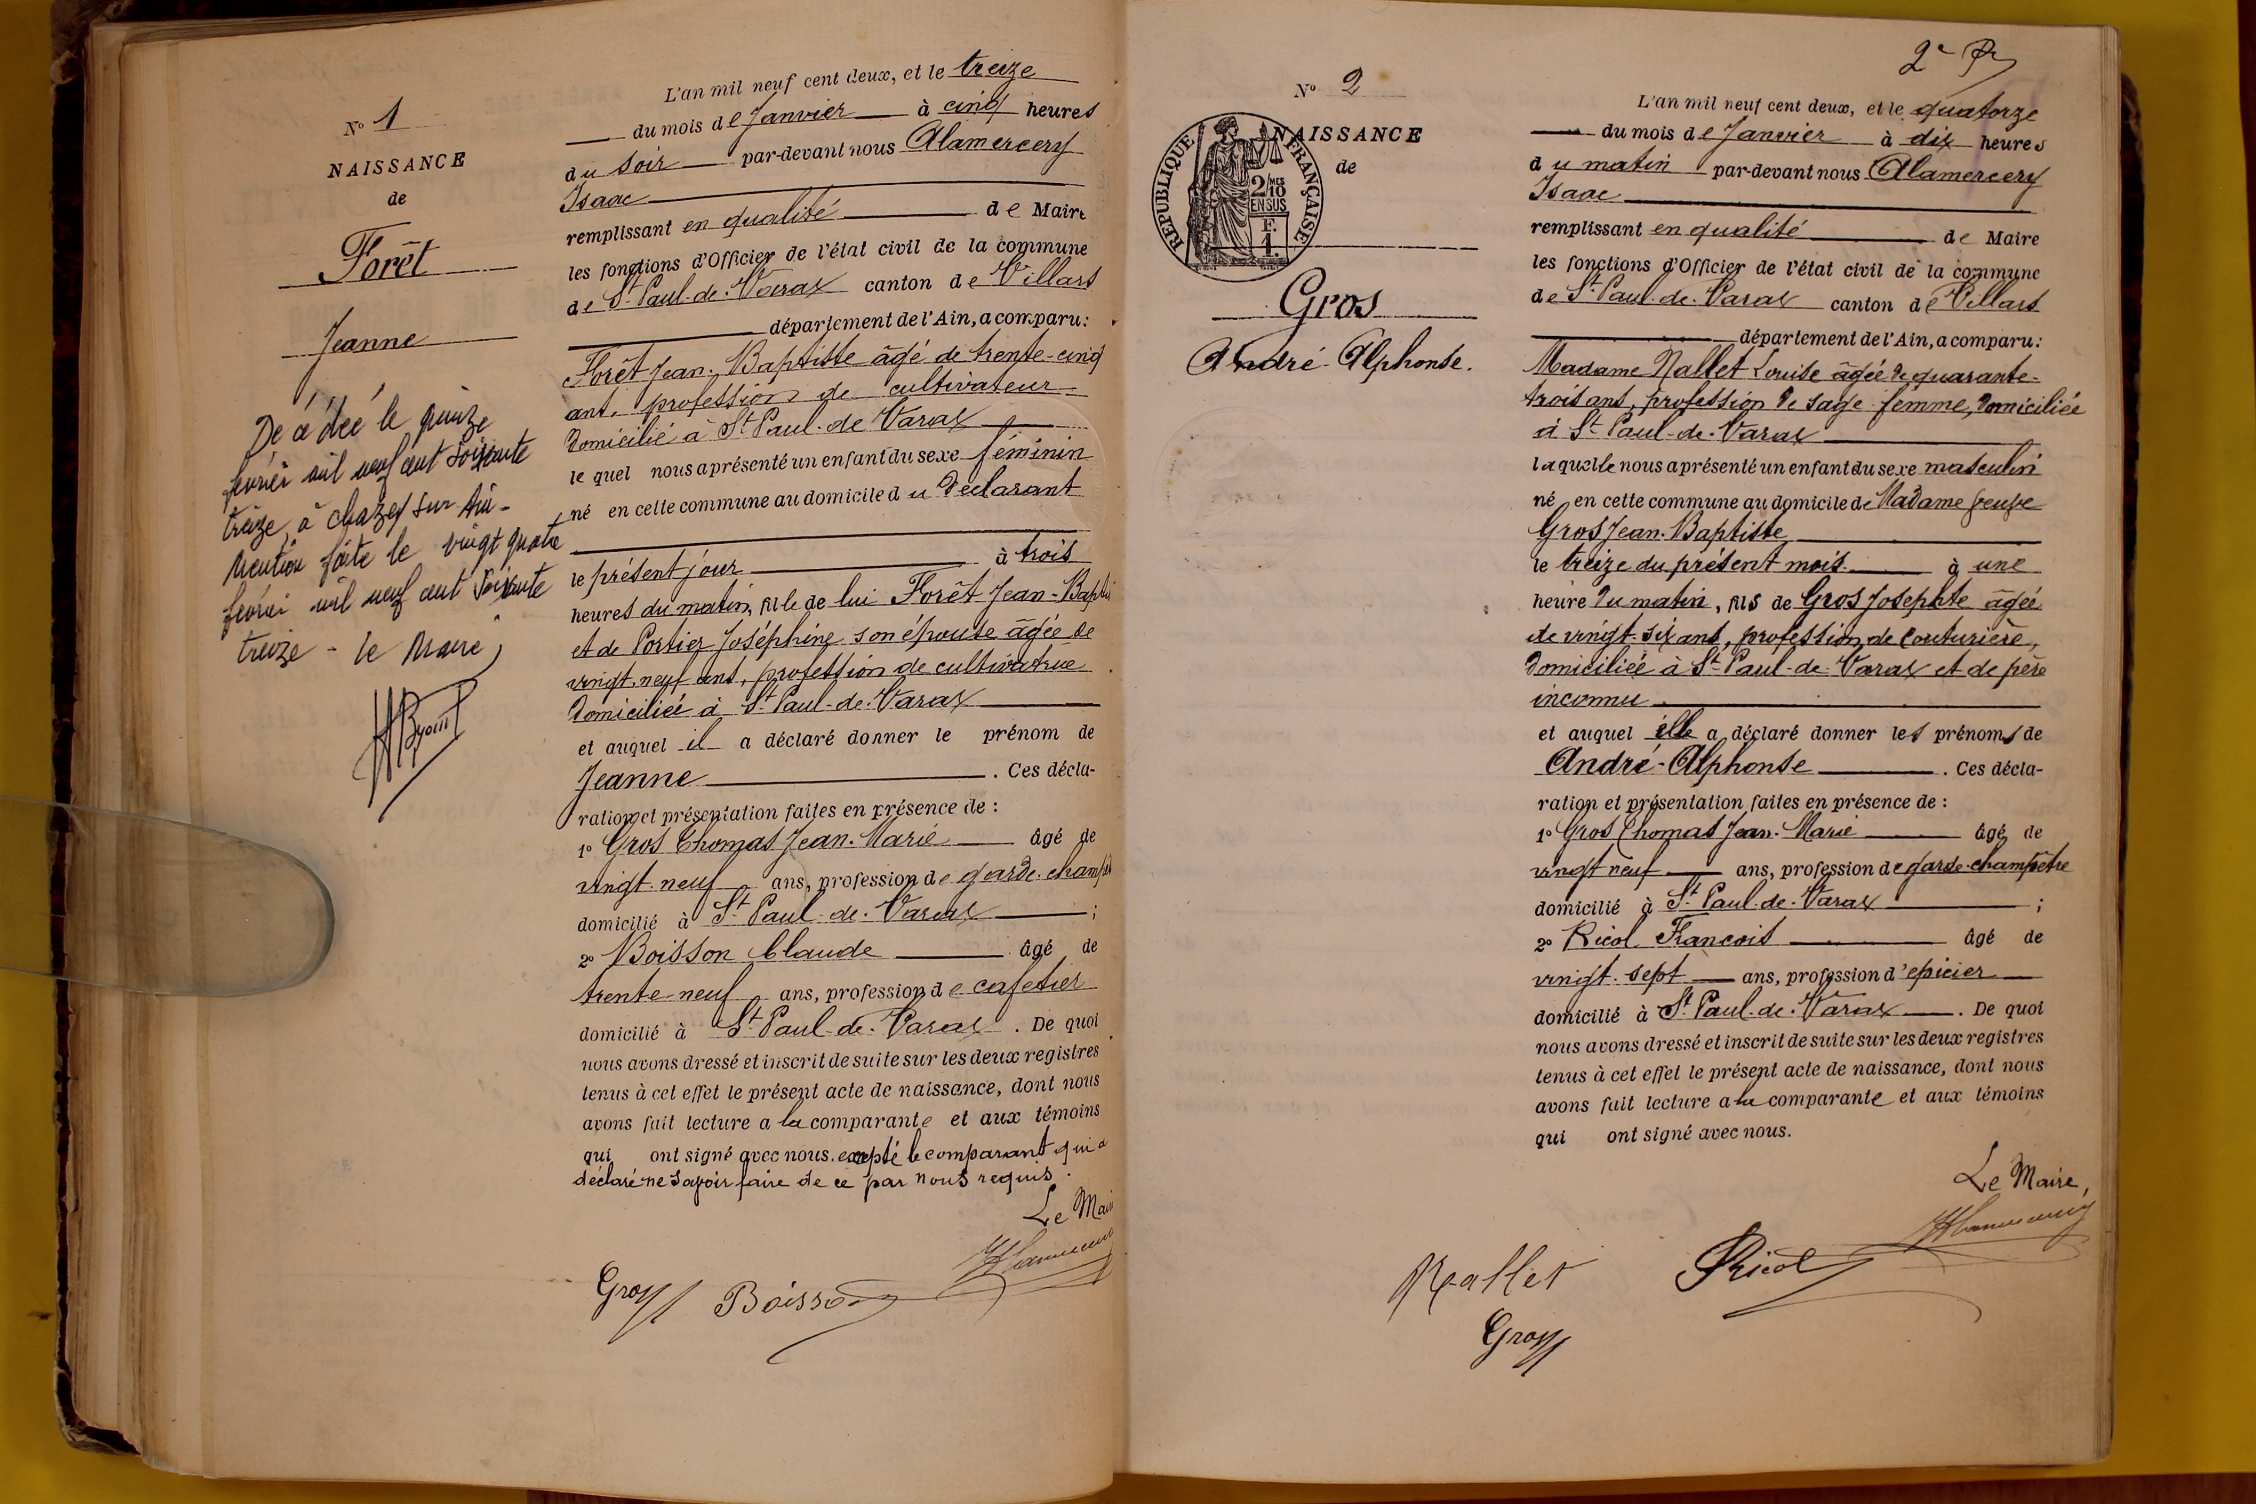 N° 1
NAISSANCE
de
Forêt
Jeanne
Décédée le quinze
février mil neuf cent soixante
treize, à Chazey sur Ain -
Mention faite le vingt quatre
février mil neuf cent soixante
treize - le Maire
L'an mil neuf cent deux, et le treize
du mois de Janvier à cinq heures
du soir par-devant nous Alamercery
Isaac
remplissant en qualité de Maire
les fonctions d'Officier de l'état civil de la commune
de St Paul-de-Varax canton de Villars
département de l'Ain, a comparu :
Forêt Jean-Baptiste âgé de trente-cinq
ans, profession de cultivateur
domicilié à St Paul-de-Varax
lequel nous a présenté un enfant du sexe féminin
né en cette commune au domicile du déclarant
le présent jour à trois
heures du matin, fille de lui Forêt Jean-Baptis
et de Portier Joséphine son épouse âgée de
vingt neuf ans, profession de cultivatrice
domiciliée à St Paul-de-Varax
et auquel il a déclaré donner le prénom de
Jeanne . Ces décla-
ration et présentation faites en présence de :
1° Gros Thomas Jean-Marie âgé de
vingt-neuf ans, profession de garde-champê
domicilié à St Paul-de-Varax ;
2° Boisson Claude âgé de
trente-neuf ans, profession de cafetier
domicilié à St Paul-de-Varax . De quoi
nous avons dressé et inscrit de suite sur les deux registres
tenus à cet effet le présent acte de naissance, dont nous
avons fait lecture a la comparante et aux témoins
qui ont signé avec nous. excepté le comparant qui a
déclaré ne savoir faire de ce par nous requis.
Le Mair
Gros Boisson
2e
N° 2
NAISSANCE
de
RÉPUBLIQUE FRANÇAISE
2/10 MES
EN SUS
F.
1.
Gros
André-Alphonse.
L'an mil neuf cent deux, et le quatorze
du mois de Janvier à dix heures
du matin par-devant nous Alamercery
Isaac
remplissant en qualité de Maire
les fonctions d'Officier de l'état civil de la commune
de St Paul-de-Varax canton de Villars
département de l'Ain, a comparu :
Madame Nallet Louise âgée de quarante-
trois ans, profession de sage-femme, domiciliée
à St Paul-de-Varax
laquelle nous a présenté un enfant du sexe masculin
né en cette commune au domicile de Madame veuve
Gros Jean-Baptiste
le treize du présent mois à une
heure du matin, fils de Gros Josephte âgée
de vingt-six ans, profession de couturière,
domiciliée à St Paul-de-Varax et de père
inconnu
et auquel elle a déclaré donner les prénoms de
André-Alphonse . Ces décla-
ration et présentation faites en présence de :
1° Gros Thomas Jean-Marie âgé de
vingt neuf ans, profession de garde-champêtre
domicilié à St Paul-de-Varax ;
2° Ricol François âgé de
vingt-sept ans, profession d'epicier
domicilié à St Paul-de-Varax . De quoi
nous avons dressé et inscrit de suite sur les deux registres
tenus à cet effet le présent acte de naissance, dont nous
avons fait lecture a la comparante et aux témoins
qui ont signé avec nous.
Le Maire,
Nallet Ricol
Gros